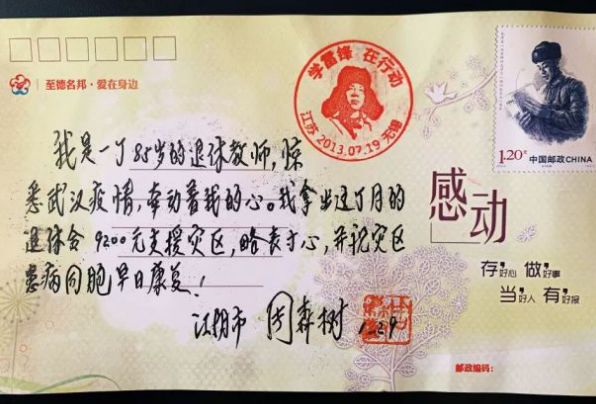 至德名邦·爱在身边
学雷锋 在行动
江苏 2013.07.19 无锡
1.20元 中国邮政CHINA
我是一个85岁的退休教师,惊
悉武汉疫情,牵动着我的心。我拿出这个月的
退休金9200元支援灾区,略表寸心,并祝灾区
患病同胞早日康复!
江阴市 周森树 1.29
感动
存好心 做好事
当好人 有好报
邮政编码: